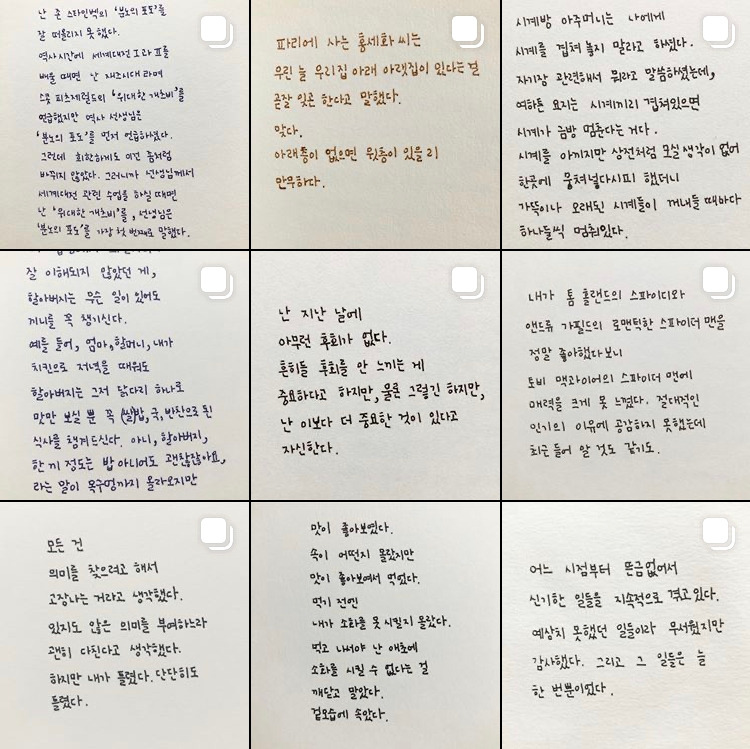 난 존 스타인벡의 '분노의 포도'를
잘 떠올리지 못했다.
역사시간에 세계대전 I과 II를
배울 때면 난 재즈시대라며
스콧 피츠제럴드의 '위대한 개츠비'를
언급했지만 역사 선생님은
'분노의 포도'를 먼저 언급하셨다.
그런데 희한하게도 이건 좀처럼
바뀌지 않았다. 그러니까 선생님께서
세계대전 관련 수업을 하실 때면
난 '위대한 개츠비'를, 선생님은
'분노의 포도'를 가장 첫 번째로 말했다.
파리에 사는 홍세화 씨는
우린 늘 우리집 아래 아랫집이 있다는 걸
곧잘 잊곤 한다고 말했다.
맞다.
아래층이 없으면 윗층이 있을 리
만무하다.
시계방 아주머니는 나에게
시계를 겹쳐 놓지 말라고 하셨다.
자기장 관련해서 뭐라고 말씀하셨는데,
여하튼 요지는 시계끼리 겹쳐있으면
시계가 금방 멈춘다는 거다.
시계를 아끼지만 상전처럼 모실 생각이 없어
한곳에 뭉쳐넣다시피 했더니
가뜩이나 오래된 시계들이 꺼내들 때마다
하나둘씩 멈춰있다.
잘 이해되지 않았던 게,
할아버지는 무슨 일이 있어도
끼니를 꼭 챙기신다.
예를 들어, 엄마, 할머니, 내가
치킨으로 저녁을 때워도
할아버지는 그저 닭다리 하나로
맛만 보실 뿐 꼭 (쌀)밥, 국, 반찬으로 된
식사를 챙겨드신다. 아니, 할아버지,
한 끼 정도는 밥 아니어도 괜찮잖아요,
라는 말이 목구멍까지 올라오지만
난 지난 날에
아무런 후회가 없다.
흔히들 후회를 안 느끼는 게
중요하다고 하지만, 물론 그렇긴 하지만,
난 이보다 더 중요한 것이 있다고
자신한다.
내가 톰 홀랜드의 스파이디와
앤드류 가필드의 로맨틱한 스파이더 맨을
정말 좋아했다보니
토비 맥과이어의 스파이더 맨에
매력을 크게 못 느꼈다. 절대적인
인기의 이유에 공감하지 못했는데
최근 들어 알 것도 같기도.
모든 건
의미를 찾으려고 해서
고장나는 거라고 생각했다.
있지도 않은 의미를 부여하느라
괜히 다친다고 생각했다.
하지만 내가 틀렸다. 단단히도
틀렸다.
맛이 좋아보였다.
속이 어떤지 몰랐지만
맛이 좋아보여서 먹었다.
먹기 전엔
내가 소화를 못 시킬지 몰랐다.
먹고 나서야 난 애초에
소화를 시킬 수 없다는 걸
깨닫고 말았다.
겉모습에 속았다.
어느 시점부터 뜬금없어서
신기한 일들을 지속적으로 겪고 있다.
예상치 못했던 일들이라 무서웠지만
감사했다. 그리고 그 일들은 늘
한 번뿐이었다.